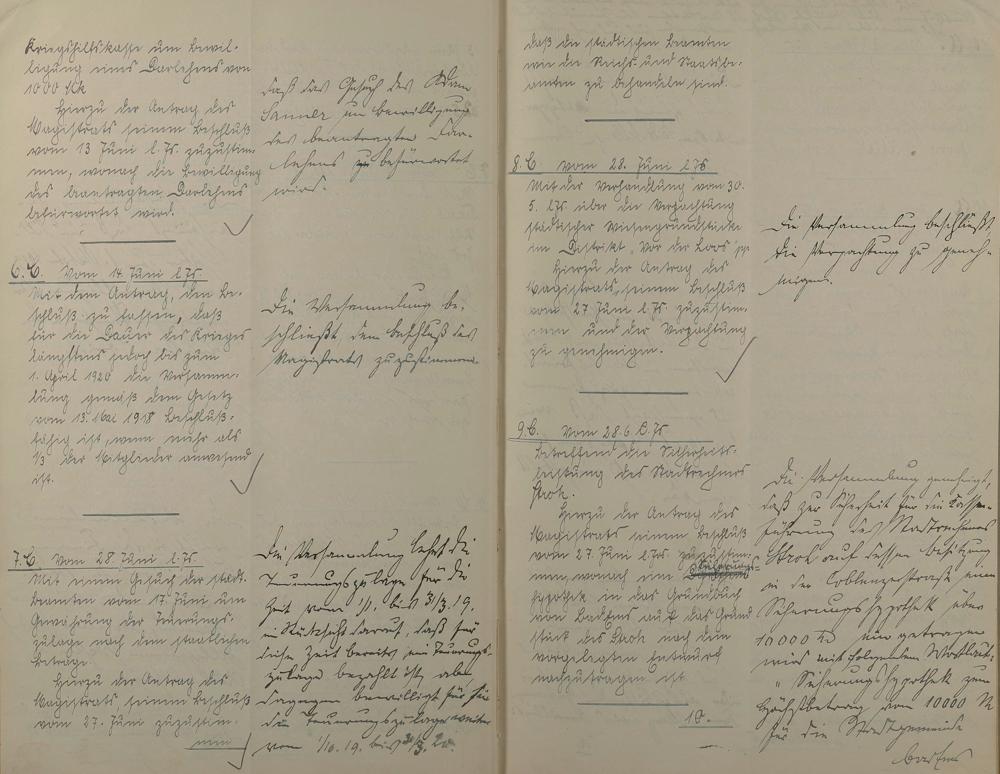 Kriegshilfskasse um Bewil-
ligung eines Darlehens von
1000 Mk
Hierzu der Antrag des
Magistrats seinem Beschluß
vom 13 Juni l. Js. zuzustim-
men, wonach die Bewilligung
des beantragten Darlehens
befürwortet wird.
daß das Gesuch des
um Bewilligung
des beantragten Dar-
lehens zu befürwortet
wird.
6. C. Vom 14. Juni l. Js.
Mit dem Antrag, den Be-
schluß zu fassen, daß
für die Dauer des Krieges
längstens jedoch bis zum
1. April 1920 die Versamm-
lung gemäß dem Gesetz
vom 13. Mai 1918 Beschluß-
fähig ist, wenn mehr als
1/3 der Mitglieder anwesend
ist.
Die Versammlung be-
schließt, dem Beschluß des
Magistrats zuzustimmen.
7. C. Vom 28. Juni l. Js.
Mit einem Gesuch der städt.
Beamten vom 17. Juni um
Gewährung der Teuerungs-
zulage nach dem staatlichen
Betrage.
Hierzu der Antrag des
Magistrats, seinem Beschluß
vom 27. Juni zuzustim-
men
Die Versammlung lehnt die
Teuerungszulage für die
Zeit vom 1/1. bis 31/3. 19.
im Rücksicht darauf, daß für
diese Zeit bereits eine Teuerungs-
zulage bezahlt ist, ab
dagegen bewilligt für sie
die Teuerungszulage weiter
vom 1/10. 19. bis 31/3. 20.
daß die städtischen Beamten
wie die Reichs und Staatsbe-
amten zu behandeln sind.
8. C. Vom 28. Juni l Js
Mit der Verhandlung vom 30.
5. l Js über die Verpachtung
städtischer Wiesengrundstücke
im Distrikt „Vor der Loos" pp
Hierzu der Antrag des
Magistrats, seinem Beschluß
vom 27 Juni l. Js. zuzustim-
men und der Verpachtung
zu genehmigen.
Die Versammlung beschließt
die Verpachtung zu geneh-
migen.
9. C. Vom 28. 6 l. Js.
Betreffend die Sicherheits-
leistung des Stadtrechners
Hierzu der Antrag des
Magistrats seinem Beschluß
vom 27. Juni l. Js. zuzustim-
men, wonach eine Sicherungs-
hypothek in das Grundbuch
von auf das Grund
stück des nach dem
vorgelegten Entwurf
nachzutragen ist
10.
Die Versammlung genehmigt,
daß zur Sicherheit für die Kassen-
führung des Stadtrechners
auf dessen Besitzung
in der Coblenzerstraße eine
Sicherungshypothek über
10000 M eingetragen
wird mit folgendem Wortlaut:
„Sicherungshypothek zum
Höchstbetrag von 10000 M
für die Stadtgemeinde